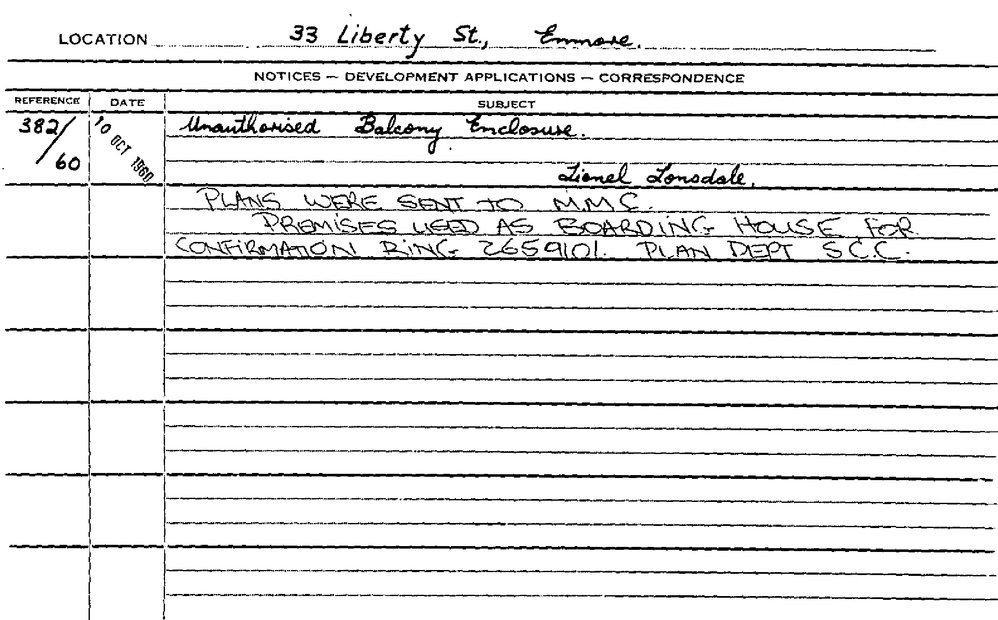 LOCATION 33 Liberty St., Enmore.
NOTICES — DEVELOPMENT APPLICATIONS — CORRESPONDENCE
REFERENCE DATE SUBJECT
382/60 10 OCT 1960 Unauthorised Balcony Enclosure.
Lionel Lonsdale.
PLANS WERE SENT TO M.M.C.
PREMISES USED AS BOARDING HOUSE FOR
CONFIRMATION RING 2659101. PLAN DEPT S.C.C.